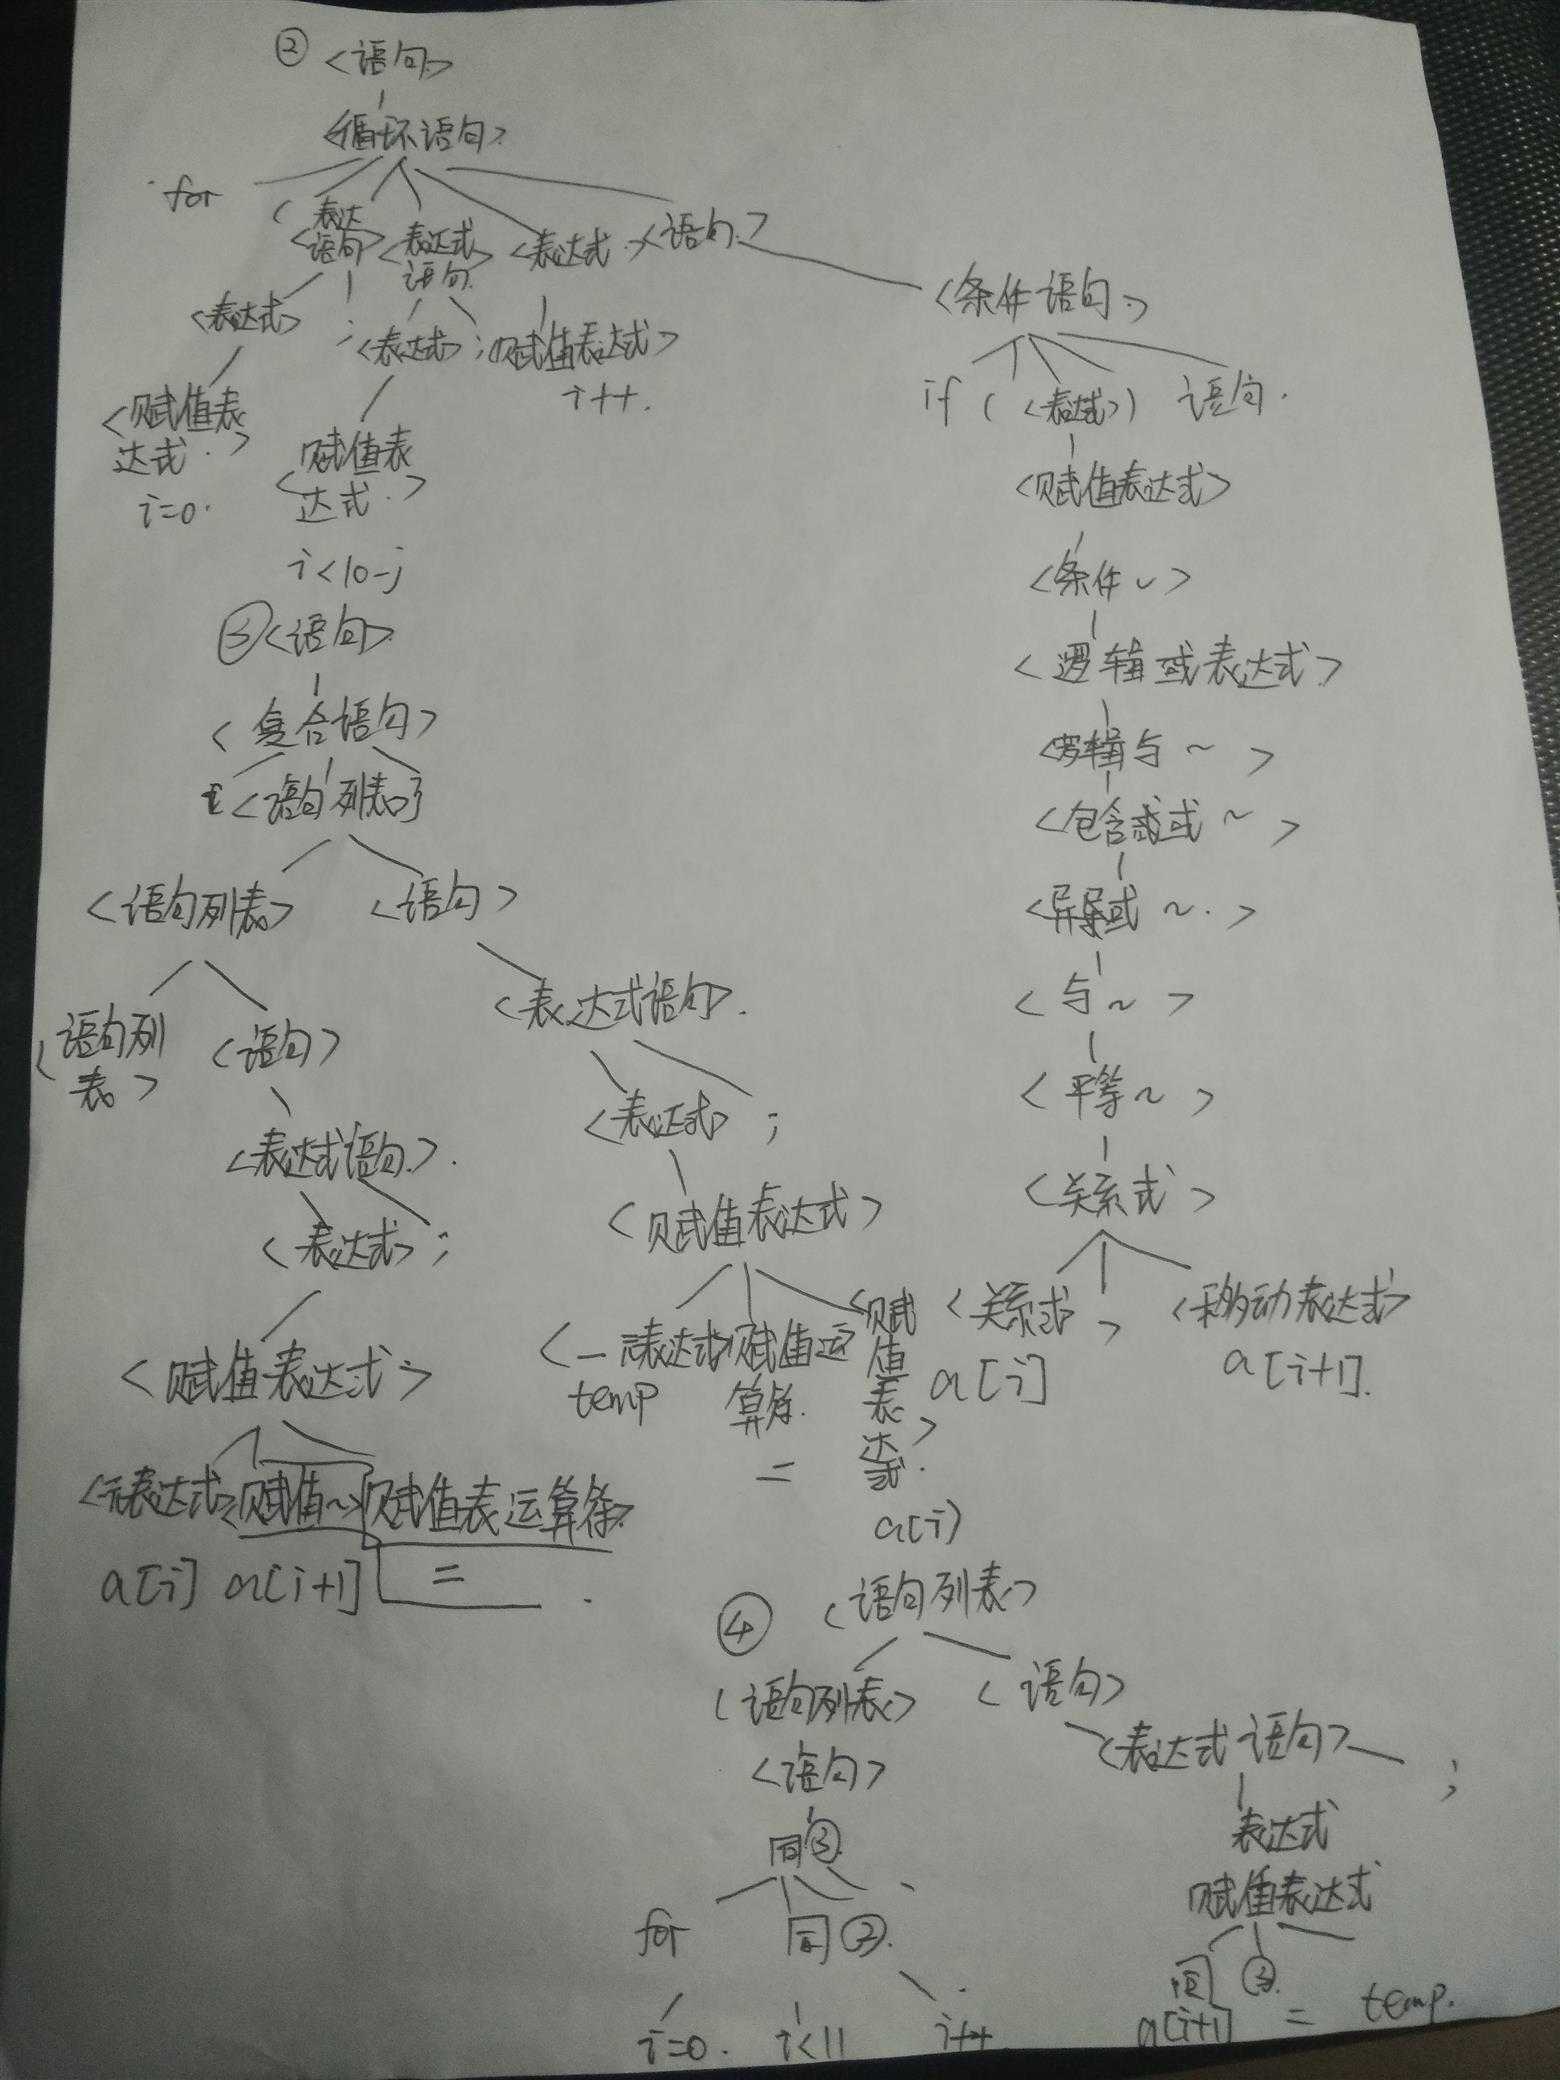 ② <语句>
<循环语句>
for ( <表达语句> <表达式语句> <表达式> <语句>
<表达式> ; <表达式> ; <赋值表达式>
i++.
<赋值表达式>
i=0.
<赋值表达式>
i<10-j
<条件语句>
if ( <表达式> ) 语句.
<赋值表达式>
<条件~>
<逻辑或表达式>
<逻辑与~>
<包含或~>
<异或~>
<与~>
<平等~>
<关系式>
<关系式> > <移动表达式>
a[i] a[i+1].
③ <语句>
<复合语句>
{ <语句列表> }
<语句列表> <语句>
<语句列表> <语句>
<表达式语句>.
<表达式语句>.
<表达式> ;
<赋值表达式>
<一元表达式> 赋值运算符. <赋值表达式>
temp = a[i]
<表达式> ;
<赋值表达式>
<元表达式> <赋值~> 赋值表运算符>
a[i] a[i+1] =
④ <语句列表>
<语句列表> <语句>
<语句> <表达式语句> ;
同③ 表达式
赋值表达式
for 同②. 同③
i=0. i<11 i++ a[i+1] = temp.